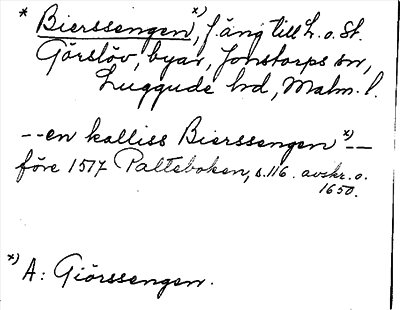 * Bierssengen *), f. äng till L. o. St.
Görslöv, byar, Jonstorps sn,
Luggude hd, Malm. l.
-- en kalliss Bierssengen *) --
före 1517 Palteboken, s. 116. avskr. o.
1650.
*) A: Giörssengen.